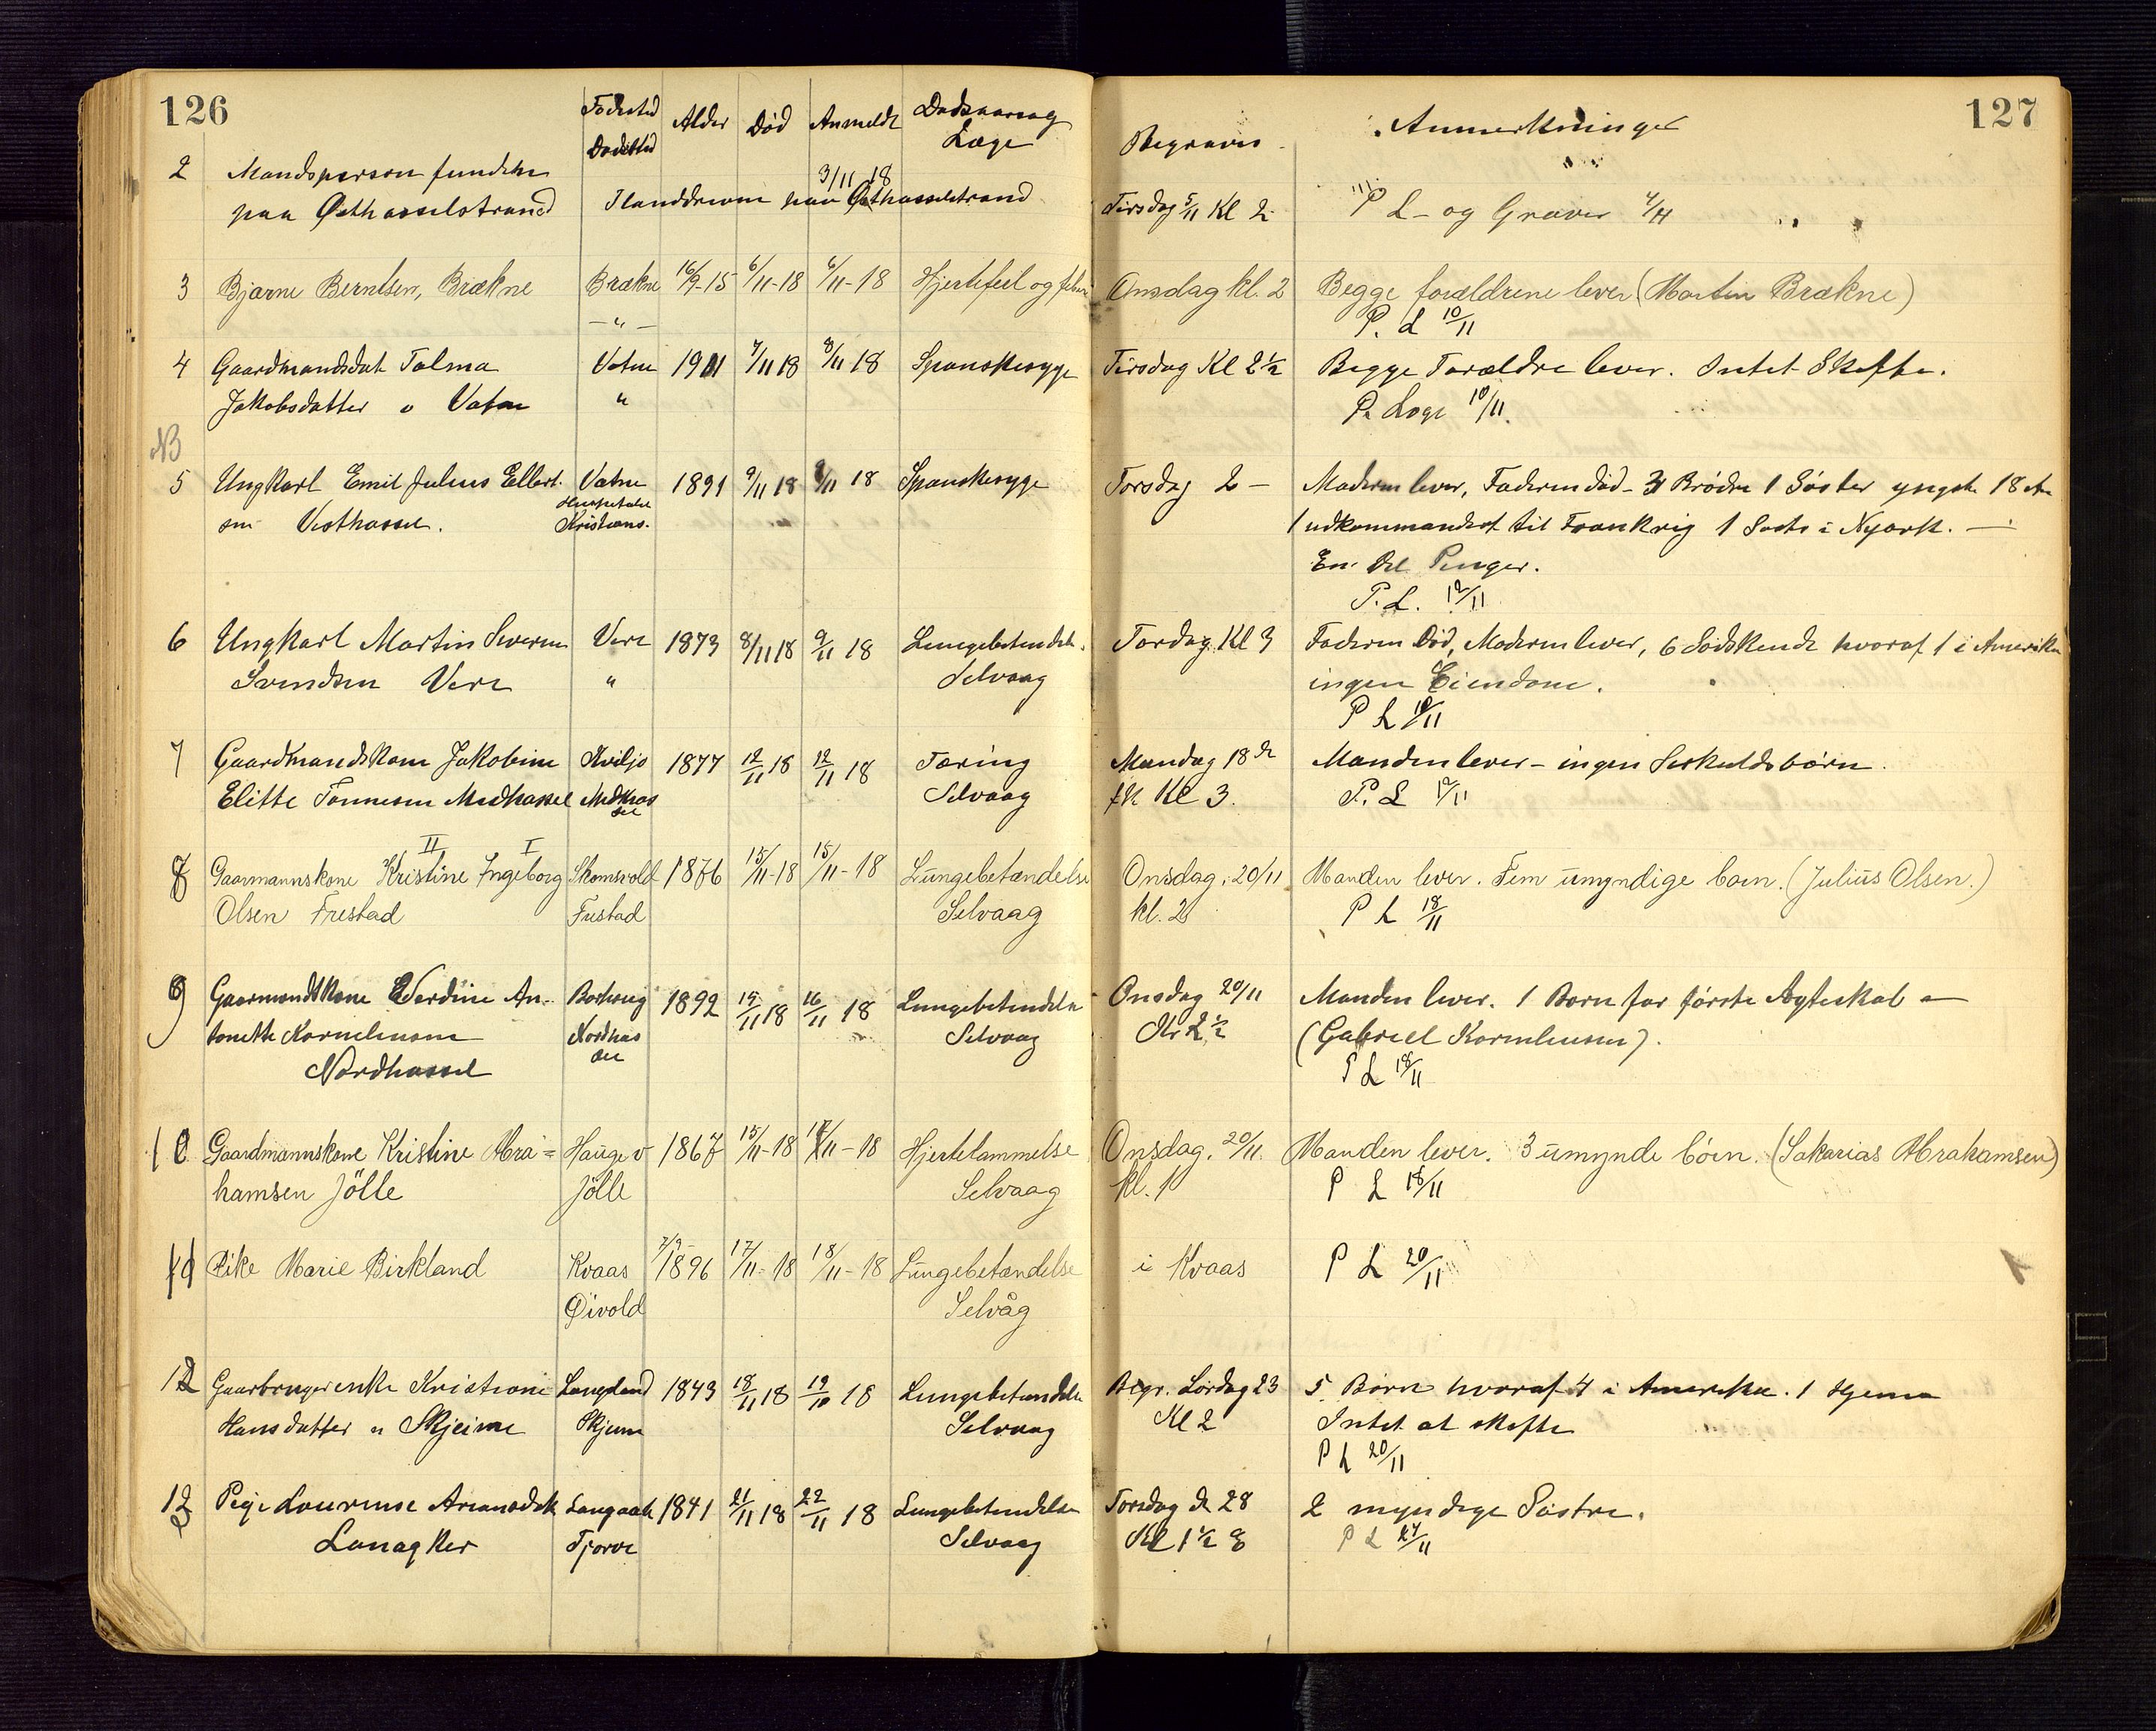 126
127
Fødested Alder Død Anmeldt Dødsaarsag Begraves Anmerkninger
Dødssted Læge
2 Mandsperson funden 3/11 18
paa Østhasselstrand Ilanddreven paa Østhasselstrand Tirsdag 5/11 Kl 2 P L - og Graver 4/11
3 Bjarne Berntsen, Brækne Brækne 16/9-15 6/11-18 6/11-18 Hjertefeil og Onsdag kl. 2 Begge forældrene lever (Martin Brækne)
— " — P. L 10/11
4 Gaardmandsdat Talma Vatne 1901 7/11 18 8/11 18 Spanskesyge Tirsdag Kl 2½ Begge Forældre lever. Intet Skifte.
Jakobsdatter v Vatne " P. Loge 10/11.
NB
5 Ungkarl Emil Julius Ellert- Vatne 1891 9/11 18 9/11 18 Spanskesyge Torsdag 2 — Moderen lever, Faderen død - 3 Brødre 1 Søster yngste 18 Aar
sen Vesthassel. Hospitalet 1 udkommandert til Frankrig 1 Søster i Nyork. —
Kristians.
En Del Penger.
P. L. 12/11
6 Ungkarl Martin Severin Vere 1873 8/11 18 9/11 18 Lungebetendelse. Torsdag Kl 3 Faderen Død, Moderen lever, 6 Sødskende hvoraf 1 i Amerika
Svendsen Vere " Selvaag ingen Eiendom.
P L 10/11
7 Gaardmandskone Jakobine Kviljo 1877 12/11 18 12/11 18 Tæring Mandag 18de Manden lever - ingen Leskuldsbørn.
Elitte Tønnesen Medhassel Medhassel Selvaag Kl 3. P. L 17/11
II I
8 Gaarmannskone Kristine Ingeborg Skomsvold 1876 15/11-18 15/11-18 Lungebetændelse Onsdag. 20/11 Manden lever. Fem umyndige born. (Julius Olsen.)
Olsen Frestad Frestad Selvaag kl. 2 P L 18/11
9 Gaarmandskone Verdine An- Borhaug 1892 15/11 18 16/11 18 Lungebetendelse Onsdag 20/11 Manden lever. 1 Barn før første Ægteskab —
tonette Korneliusen Nordhassel Selvaag Kl 2½ (Gabriel Korneliusen).
Nordhassel P L 18/11
10 Gaardmannskone Kristine Abra= Hauge v 1867 15/11-18 17/11-18 Hjertelammelse Onsdag. 20/11. Manden lever. 3 umynde børn. (Sakarias Abrahamsen)
hamsen Jölle Jölle Selvaag kl. 1 P L 18/11
11 Pike Marie Birkland Kvaas 7/9-1896 17/11-18 18/11-18 Lungebetændelse i Kvaas P L 20/11
Øivold Selvåg
12 Gaarbrugerenke Kristiane Langeland 1843 18/11 18 19/10 18 Lungebetendelse Begr. Lørdag 23 5 Børn hvoraf 4 i Amerika. 1 Hjeme
Hansdatter v Skjeime Skjeime Selvaag Kl 2 Intet at skifte
P L 20/11
13 Pige Lourense Arianosdat Langaak 1841 21/11 18 22/11 18 Lungebetendelse Torsdag d 28 2 myndige Søstre.
Lanagker Tjorve Selvaag Kl 1½ P L 27/11